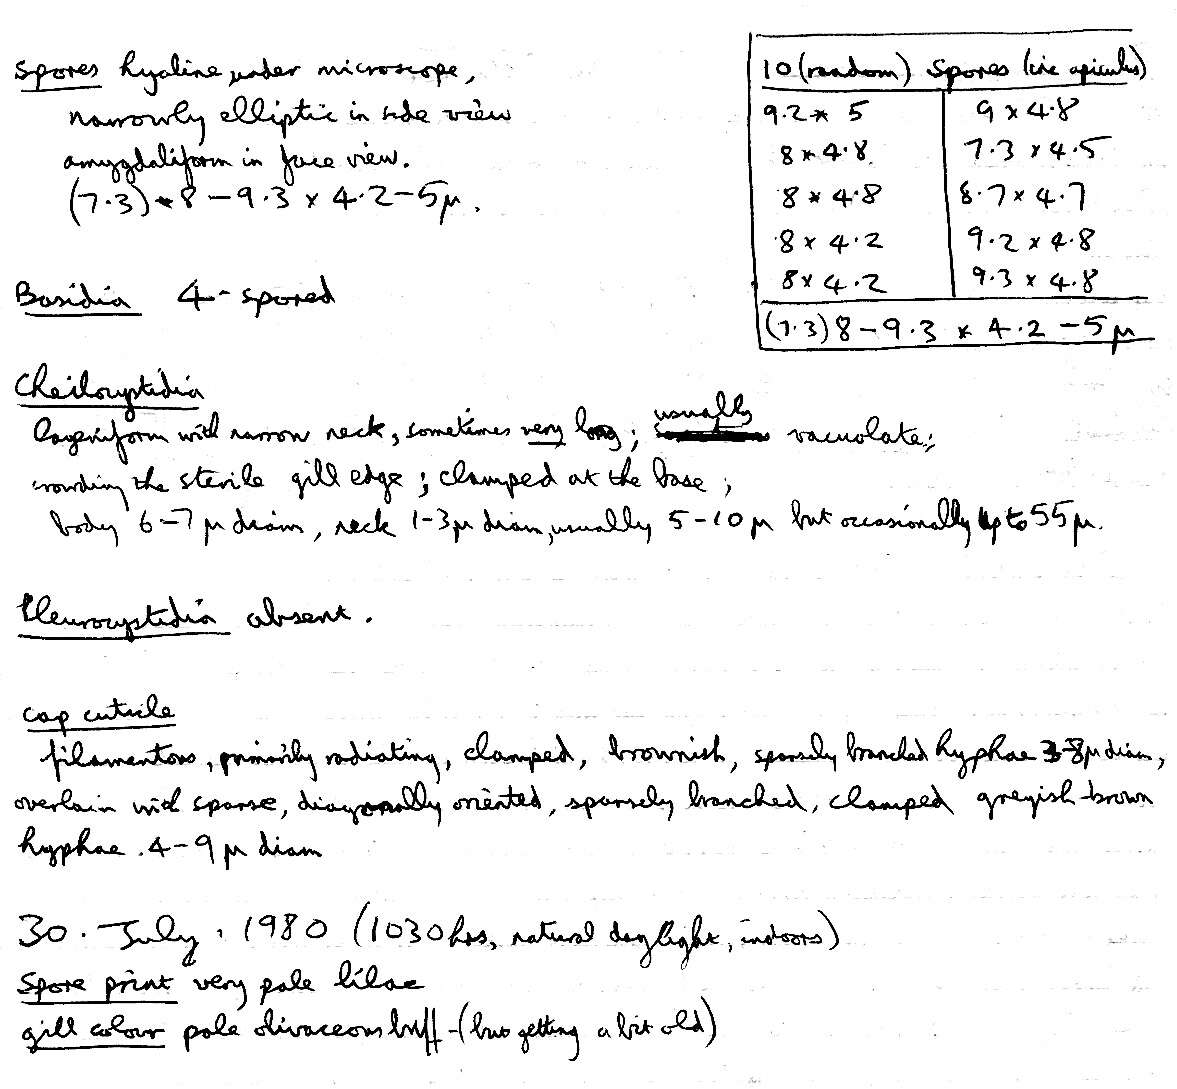 Spores hyaline under microscope,
narrowly elliptic in side view
amygdaliform in face view.
(7.3) 8 – 9.3 x 4.2 – 5 µ.
10 (random) Spores (inc apiculus)
9.2 x 5 9 x 4.8
8 x 4.8 7.3 x 4.5
8 x 4.8 8.7 x 4.7
8 x 4.2 9.2 x 4.8
8 x 4.2 9.3 x 4.8
(7.3) 8 – 9.3 x 4.2 – 5 µ
Basidia 4-spored
Cheilocystidia
lageniform with narrow neck, sometimes very long; usually vacuolate;
crowding the sterile gill edge; clamped at the base;
body 6–7 µ diam, neck 1–3 µ diam, usually 5–10 µ but occasionally up to 55 µ.
Pleurocystidia absent.
Cap cuticle
filamentous, primarily radiating, clamped, brownish, sparsely branched hyphae 3–8 µ diam,
overlain with sparse, diagonally oriented, sparsely branched, clamped greyish-brown
hyphae. 4–9 µ diam
30. July. 1980 (1030 hrs, natural daylight, indoors)
Spore print very pale lilac
gill colour pale olivaceous buff – (but getting a bit old)